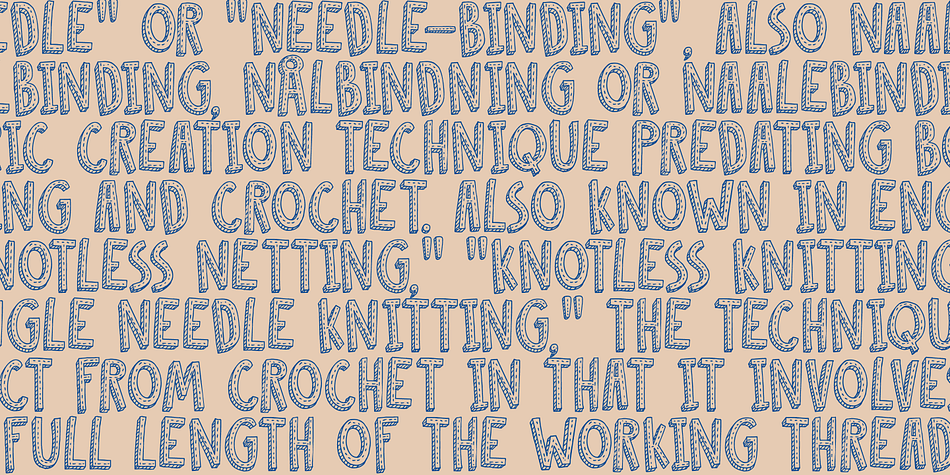 DLE" OR "NEEDLE-BINDING", ALSO NAA
BINDING, NÅLBINDNING OR NAALEBIND
IC CREATION TECHNIQUE PREDATING B
NG AND CROCHET. ALSO KNOWN IN ENG
NOTLESS NETTING," "KNOTLESS KNITTING
NGLE NEEDLE KNITTING," THE TECHNIQU
CT FROM CROCHET IN THAT IT INVOLVE
FULL LENGTH OF THE WORKING THREAD